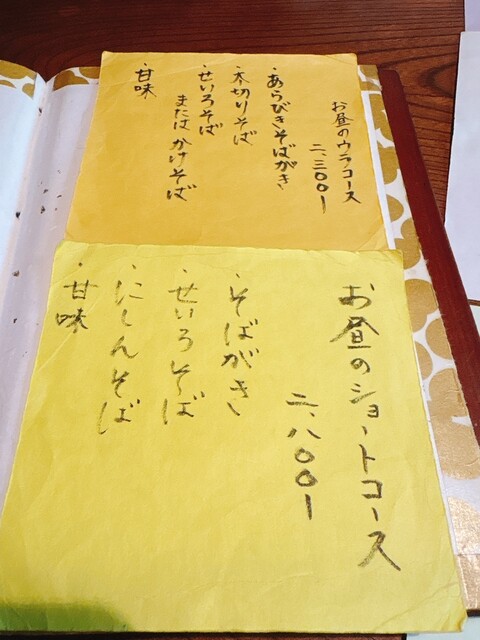 お昼のウラコース
二、三〇〇ー
・あらびきそばがき
・太切りそば
・せいろそば
またはかけそば
・甘味
お昼のショートコース
二、八〇〇ー
・そばがき
・せいろそば
・にしんそば
・甘味